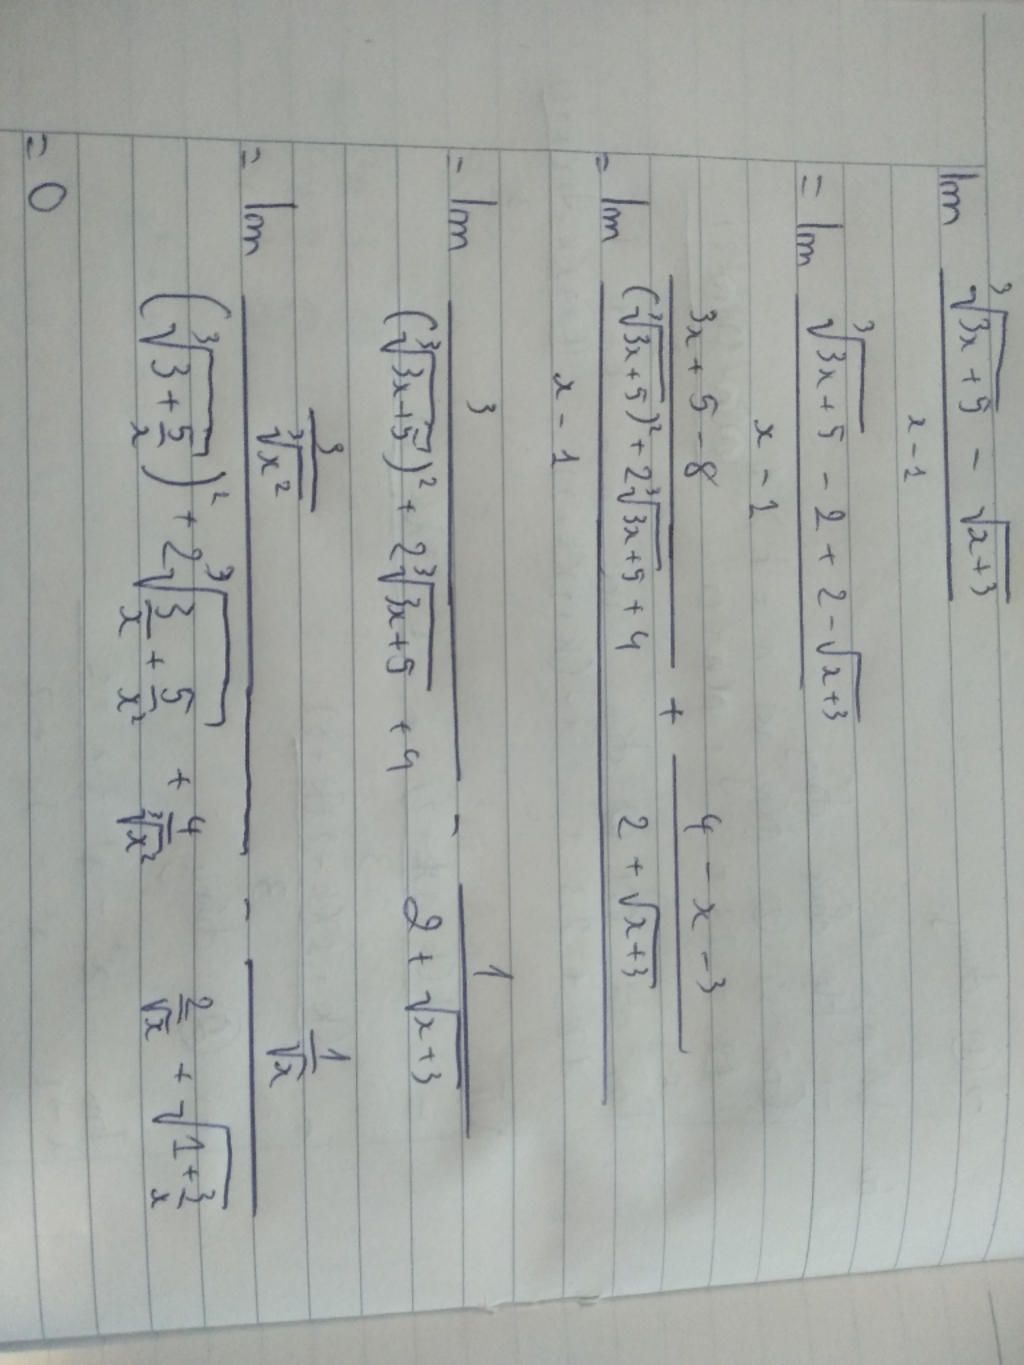 lim (∛(3x+5) - √(x+3)) / (x-1)
= lim (∛(3x+5) - 2 + 2 - √(x+3)) / (x-1)
= lim ((3x+5-8) / ((∛(3x+5))² + 2∛(3x+5) + 4) + (4-x-3) / (2+√(x+3))) / (x-1)
= lim 3 / ((∛(3x+5))² + 2∛(3x+5) + 4) - 1 / (2+√(x+3))
= lim (3/∛x²) / ((∛(3+5/x))² + 2∛(3/x + 5/x²) + 4/∛x²) - (1/√x) / (2/√x + √(1+3/x))
= 0